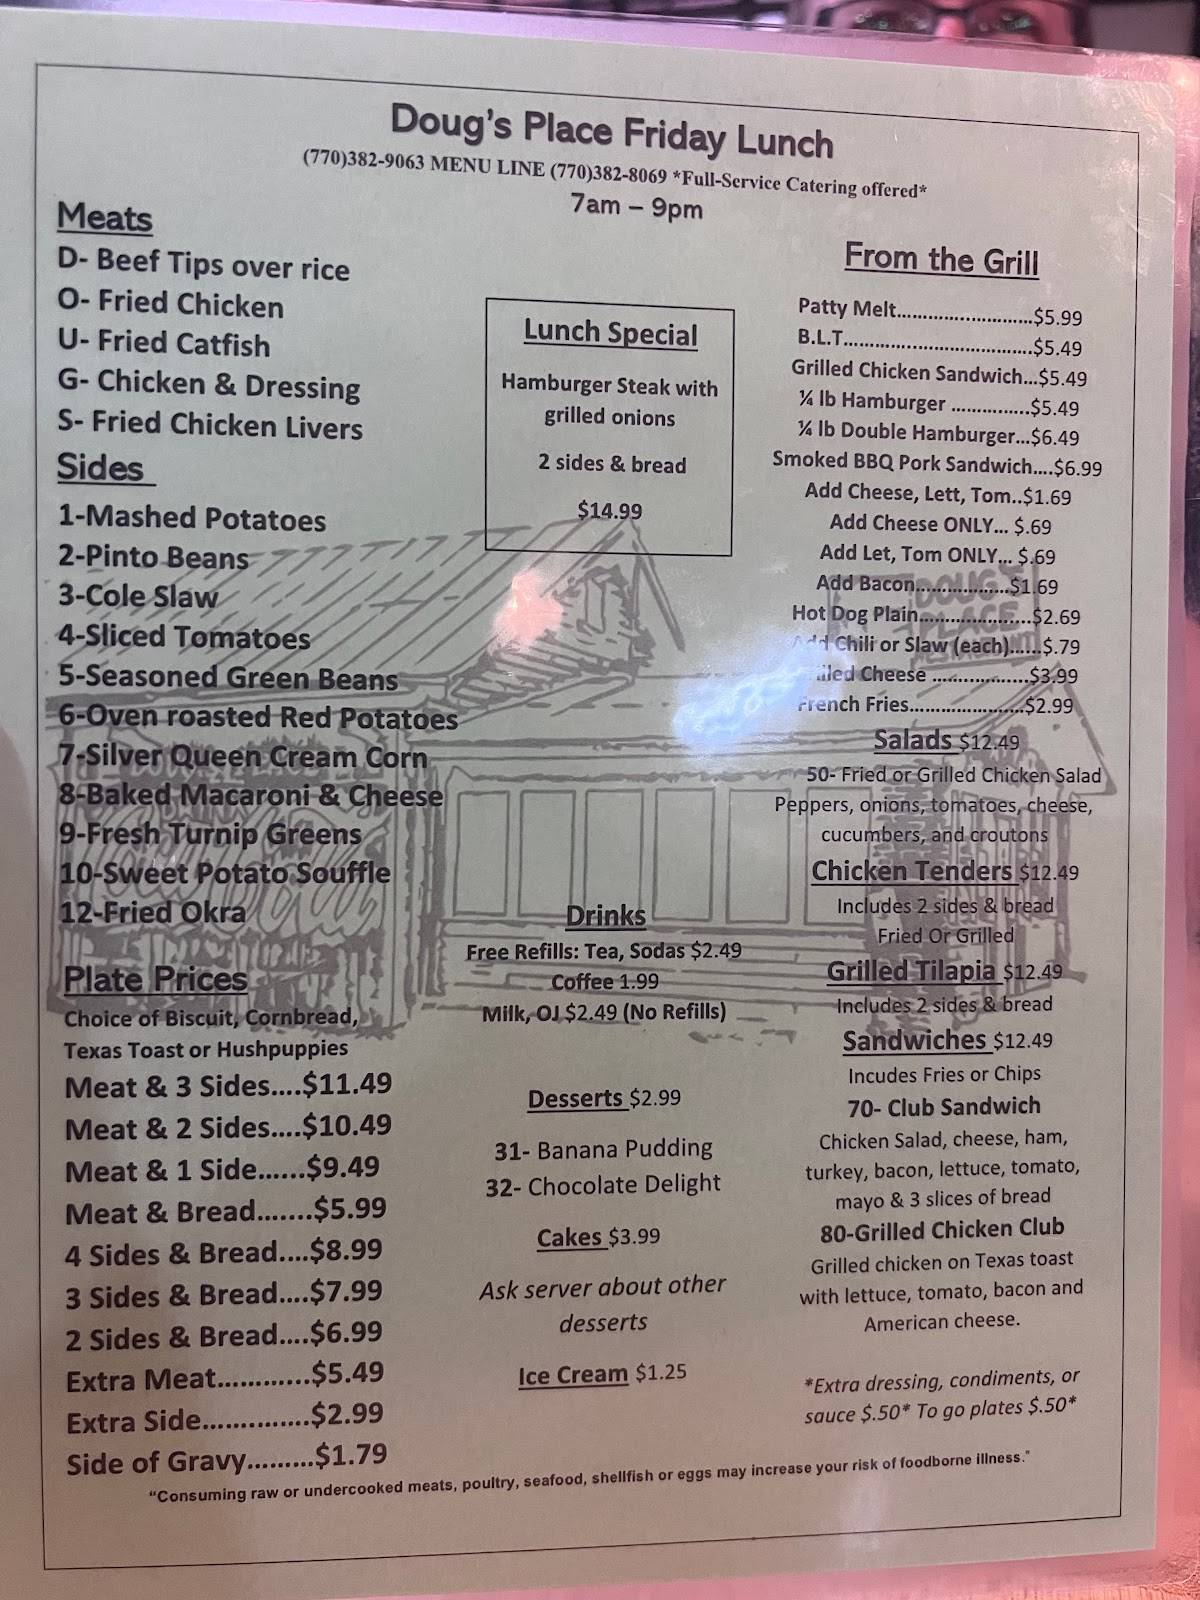 Doug's Place Friday Lunch
(770)382-9063 MENU LINE (770)382-8069 *Full-Service Catering offered*
7am – 9pm
Meats
D- Beef Tips over rice
O- Fried Chicken
U- Fried Catfish
G- Chicken & Dressing
S- Fried Chicken Livers
Sides
1-Mashed Potatoes
2-Pinto Beans
3-Cole Slaw
4-Sliced Tomatoes
5-Seasoned Green Beans
6-Oven roasted Red Potatoes
7-Silver Queen Cream Corn
8-Baked Macaroni & Cheese
9-Fresh Turnip Greens
10-Sweet Potato Souffle
12-Fried Okra
Plate Prices
Choice of Biscuit, Cornbread,
Texas Toast or Hushpuppies
Meat & 3 Sides....$11.49
Meat & 2 Sides....$10.49
Meat & 1 Side......$9.49
Meat & Bread.......$5.99
4 Sides & Bread....$8.99
3 Sides & Bread....$7.99
2 Sides & Bread....$6.99
Extra Meat............$5.49
Extra Side..............$2.99
Side of Gravy.........$1.79
Lunch Special
Hamburger Steak with
grilled onions
2 sides & bread
$14.99
Drinks
Free Refills: Tea, Sodas $2.49
Coffee 1.99
Milk, OJ $2.49 (No Refills)
Desserts $2.99
31- Banana Pudding
32- Chocolate Delight
Cakes $3.99
Ask server about other
desserts
Ice Cream $1.25
From the Grill
Patty Melt..........................$5.99
B.L.T....................................$5.49
Grilled Chicken Sandwich...$5.49
¼ lb Hamburger ...............$5.49
¼ lb Double Hamburger...$6.49
Smoked BBQ Pork Sandwich....$6.99
Add Cheese, Lett, Tom..$1.69
Add Cheese ONLY... $.69
Add Let, Tom ONLY... $.69
Add Bacon..................$1.69
Hot Dog Plain.....................$2.69
Add Chili or Slaw (each)......$.79
Cheese ..................$3.99
French Fries......................$2.99
Salads $12.49
50- Fried or Grilled Chicken Salad
Peppers, onions, tomatoes, cheese,
cucumbers, and croutons
Chicken Tenders $12.49
Includes 2 sides & bread
Fried Or Grilled
Grilled Tilapia $12.49
Includes 2 sides & bread
Sandwiches $12.49
Incudes Fries or Chips
70- Club Sandwich
Chicken Salad, cheese, ham,
turkey, bacon, lettuce, tomato,
mayo & 3 slices of bread
80-Grilled Chicken Club
Grilled chicken on Texas toast
with lettuce, tomato, bacon and
American cheese.
*Extra dressing, condiments, or
sauce $.50* To go plates $.50*
"Consuming raw or undercooked meats, poultry, seafood, shellfish or eggs may increase your risk of foodborne illness."
DOUG'S
PLACE
RESTAURANT